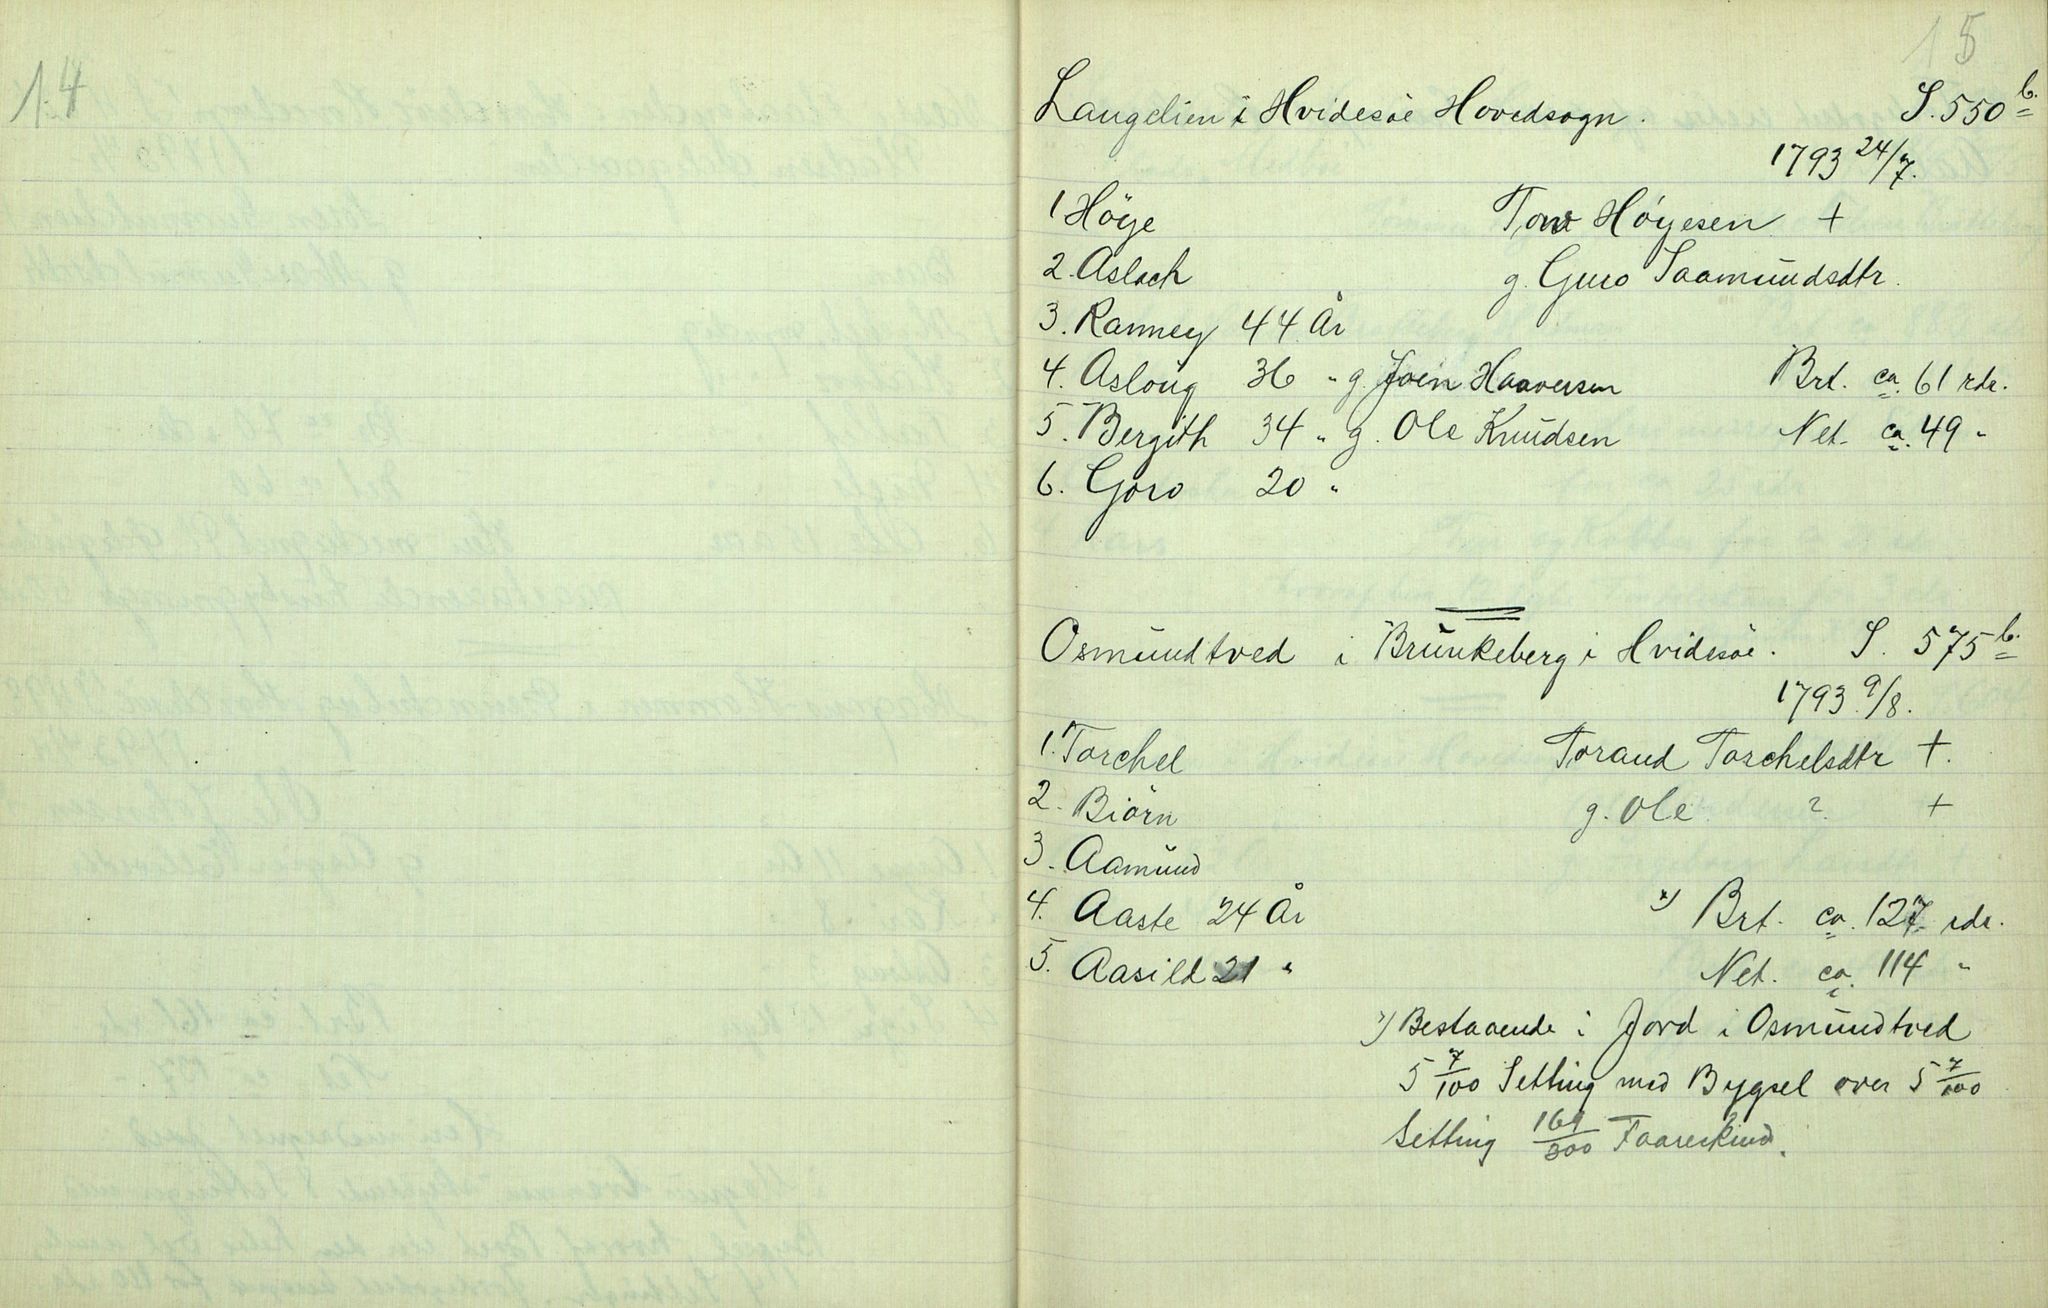 14
15
Langelien i Hvidesøe Hovedsogn. S. 550 b.
1793 24/7.
1 Höye Tov Høyesen +
2. Aslach g. Guro Saamundsdtr.
3. Ranney 44 År
4. Asloug 36 " g. Joen Haaversen Brt. ca. 61 rdr.
5. Bergith 34 " g. Ole Knudsen Net. ca. 49 "
6. Goro 20 "
Osmundtved i Brunkeberg i Hvidesøe. S. 575 b.
1793 9/8.
1. Torchel Torand Torchelsdtr +.
2. Biörn g. Ole ? +
3. Aamund
4. Aaste 24 År x) Brt. ca. 127 rdr.
5. Aasild 21 " Net. ca. 114 "
x) Bestaaende i Jord i Osmundtved
5 7/100 Setting med Bygsel over 5 7/100
Setting 169/300 Faareskind.